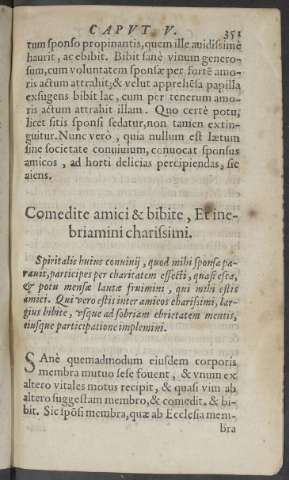 CAPVT V. 351
tum sponso propinantis, quem ille auidissimè
haurit, ac ebibit. Bibit sanè vinum genero-
sum, cum voluntatem sponsæ per fortē amo-
ris actum attrahit; & velut apprehēsa papilla
exsugens bibit lac, cum per tenerum amo-
ris actum attrahit illam. Quo certè potu,
licet sitis sponsi sedatur, non tamen extin-
guitur. Nunc verò, quia nullum est lætum
sine societate conuiuium, conuocat sponsus
amicos, ad horti delicias percipiendas, sic
aiens.
Comedite amici & bibite, Et ine-
briamini charissimi.
Spiritalis huius conuiuij, quod mihi sponsa pa-
rauit, participes per charitatem effecti, quasi escā,
& potu mensæ lautæ fruimini, qui mihi estis
amici. Qui vero estis inter amicos charissimi, lar-
gius bibite, vsque ad sobriam ebrietatem mentis,
eiusque participatione implemini.
Sanè quemadmodum eiusdem corporis
membra mutuo sese fouent, & vnum ex
altero vitales motus recipit, & quasi vim ab
altero suggestam membro, & comedit, & bi-
bit. Sic ipōsi membra, quæ ab Ecclesia mem-
bra